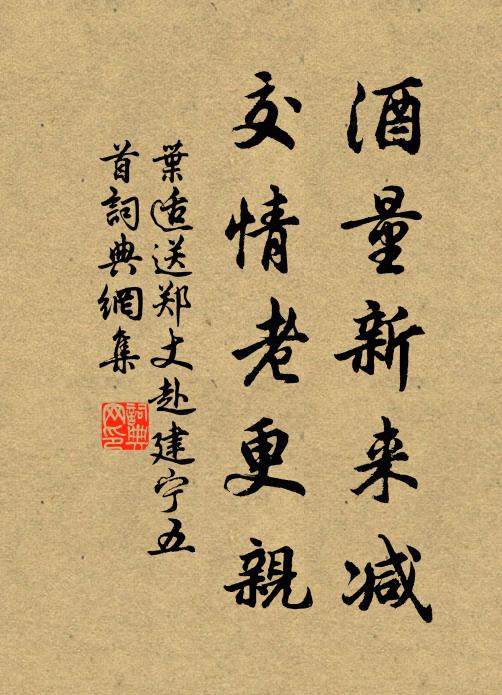 酒量新来减
交情老更親
葉适送郑丈赴建宁五
首詞典網集
詞典网印